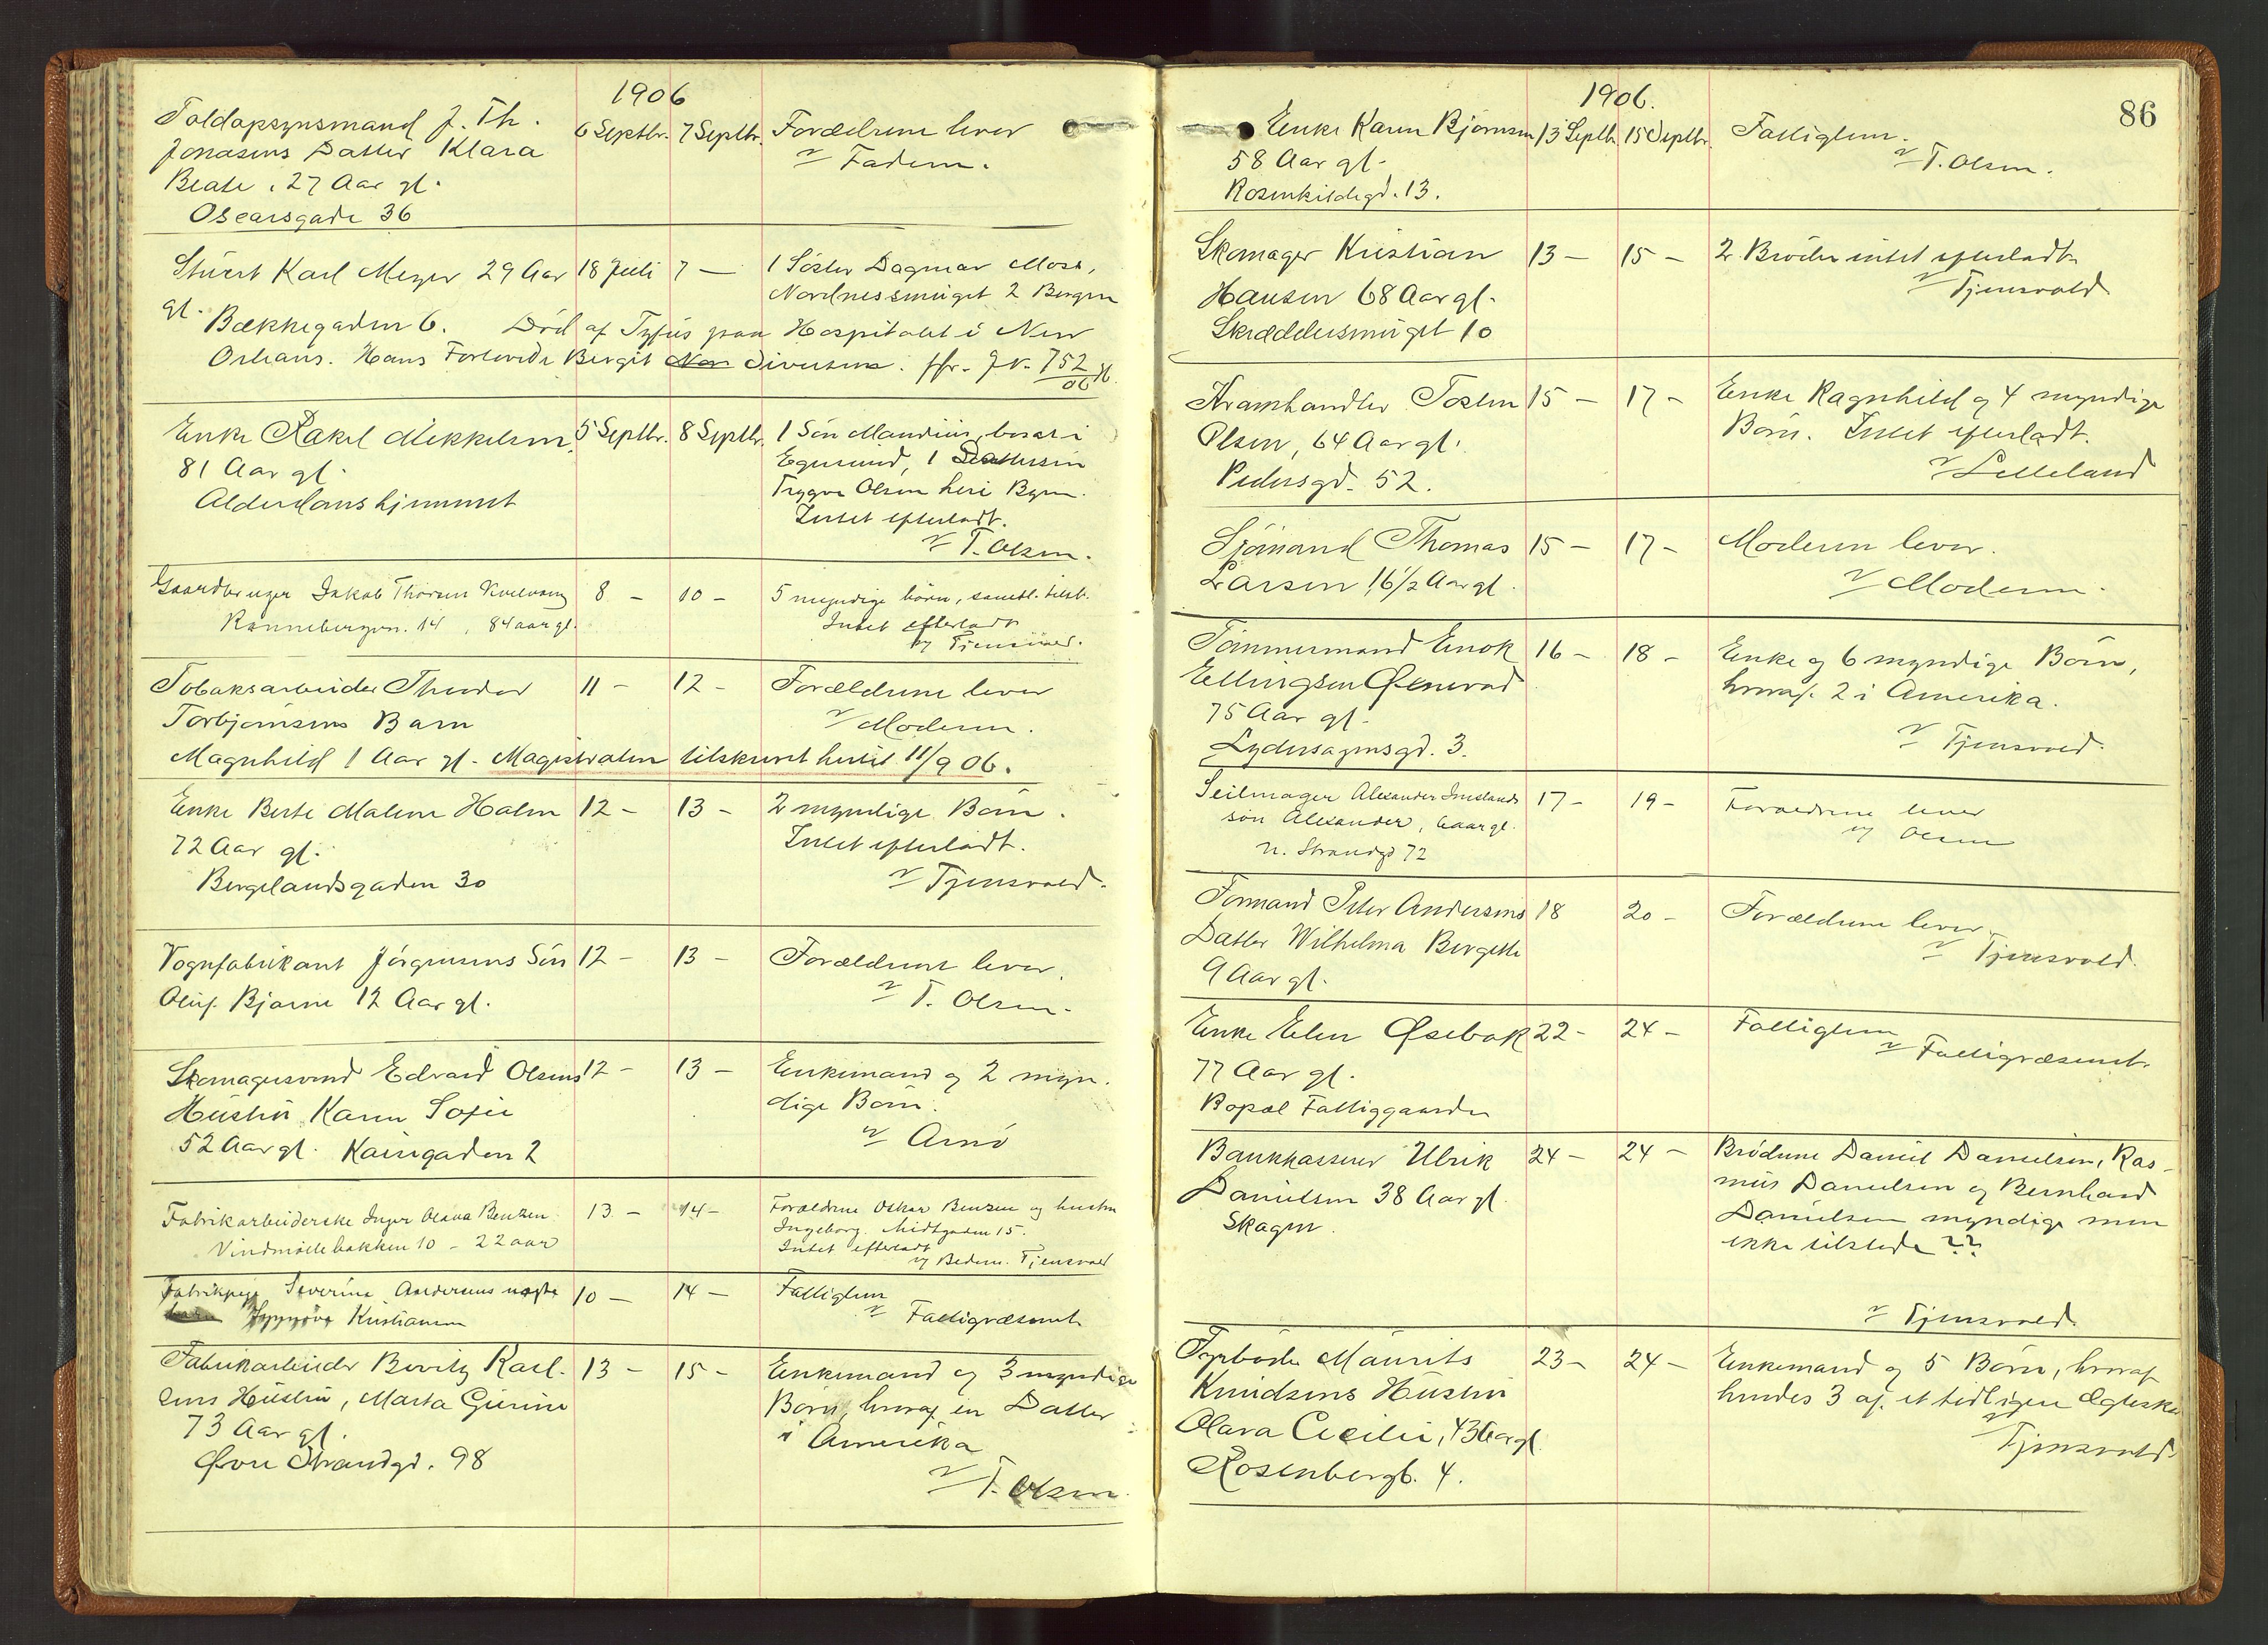 1906
Toldopsynsmand J. Th.
Jonasens Datter Klara
Beate, 27 Aar gl.
Oscarsgade 36
6 Septbr. 7 Septbr.
Forældrene lever
v Faderen.
Stuert Karl Meyer 29 Aar
gl.
18 Juli 7 —
1 Søster Dagmar Moss,
Nordnessmuget 2 Bergen
Bækkegaden 6. Død af Tyfus paa Hospitalet i New
Orleans. Hans Forlovede Bergit Sivertsen. ffr. J N. 752
06
Enke Rakel Mikkelsen
81 Aar gl.
Alderdomshjemmet
5 Septbr. 8 Septbr.
1 Søn Maurius, bosat i
Egersund, 1 Dattersøn
Trygve Olsen heri Byen.
Intet efterladt.
v T. Olsen.
Gaardbruger Jakob Thorsen Kvelvang
Rannebergvn. 14, 84 aar gl.
8 — 10 —
5 myndige børn, samtl. tilst.
Intet efterladt
v Tjensvold.
Tobaksarbeider Theodor
Torbjørnsens Barn
Magnhild 1 Aar gl. Magistraten tilskrevet hertil 11/9 06.
11 — 12 —
Forældrene lever
v Moderen.
Enke Berte Malene Holm
72 Aar gl.
Bergelandsgaden 30
12 — 13 —
2 myndige Børn.
Intet efterladt.
v Tjensvold.
Vognfabrikant Jörgensens Søn
Oluf Bjarne 12 Aar gl.
12 — 13 —
Forældrene lever.
v T. Olsen.
Skomagersvend Edvard Olsens
Hustru Karen Sofie
52 Aar gl. Kaisigaden 2
12 — 13 —
Enkemand og 2 myn-
dige Børn.
v Arnø
Fabrikarbeiderske Inger Olava Bentzen
Vindmøllebakken 10 — 22 aar
13 — 14 —
Forældrene Oskar Bentzen og hustru
Ingeborg. Midtgaden 15.
Intet efterladt
v Bedem. Tjensvold
Fabrikpige Severine Andersens uægte
barn Kristiansen
10 — 14 —
Fattiglem
v Fattigvæsenet
Fabrikarbeider Berritz Karl-
sens Hustru, Marta Gurine
73 Aar gl.
Øvre Strandgd. 98
13 — 15 —
Enkemand og 3 myndige
Børn, hvoraf en Datter
i Amerika
v T. Olsen
1906.
86
Enke Karen Bjørnsen
58 Aar gl.
Rosenkildegd. 13.
13 Septbr. 15 Septbr.
Fattiglem.
v T. Olsen.
Skomager Kristian
Hansen 68 Aar gl.
Skræddersmuget 10
13 — 15 —
2 Brødre intet efterladt
v Tjensvold
Kramhandler Tosten
Olsen, 64 Aar gl.
Pedersgd. 52.
15 — 17 —
Enke Ragnhild og 4 myndige
Børn. Intet efterladt.
v Lelleland
Sjømand Thomas
Larsen 16 1/2 Aar gl.
15 — 17 —
Moderen lever.
v Moderen.
Tømmermand Enok
Ellingsen Øknevad
75 Aar gl.
Lydersagensgd. 3.
16 — 18 —
Enke og 6 myndige Børn,
hvoraf 2 i Amerika.
v Tjensvold.
Seilmager Alexander Imslands
søn Alexander, 6 aar gl.
n. Strandgd 72
17 — 19 —
Forældrene lever
v Olsen
Formand Peter Andersens
Datter Wilhelma Bergette
9 Aar gl.
18 20 —
Forældrene lever
v Tjensvold.
Enke Elen Øsebak
77 Aar gl.
Bopæl Fattiggaarden
22 — 24 —
Fattiglem
v Fattigvæsenet.
Bankkasserer Ulrik
Danielsen 38 Aar gl.
Skagen.
24 — 24 —
Brødrene Daniel Danielsen, Ras-
mus Danielsen og Bernhard
Danielsen myndige men
ikke tilstede ??
v Tjensvold.
Fyrbøder Maurits
Knudsens Hustru
Olava Cecilie, 43 Aar gl.
Rosenbergb. 4.
23 — 24 —
Enkemand og 5 Børn, hvoraf
hendes 3 af et tidligere Ægteska
v Tjensvold.